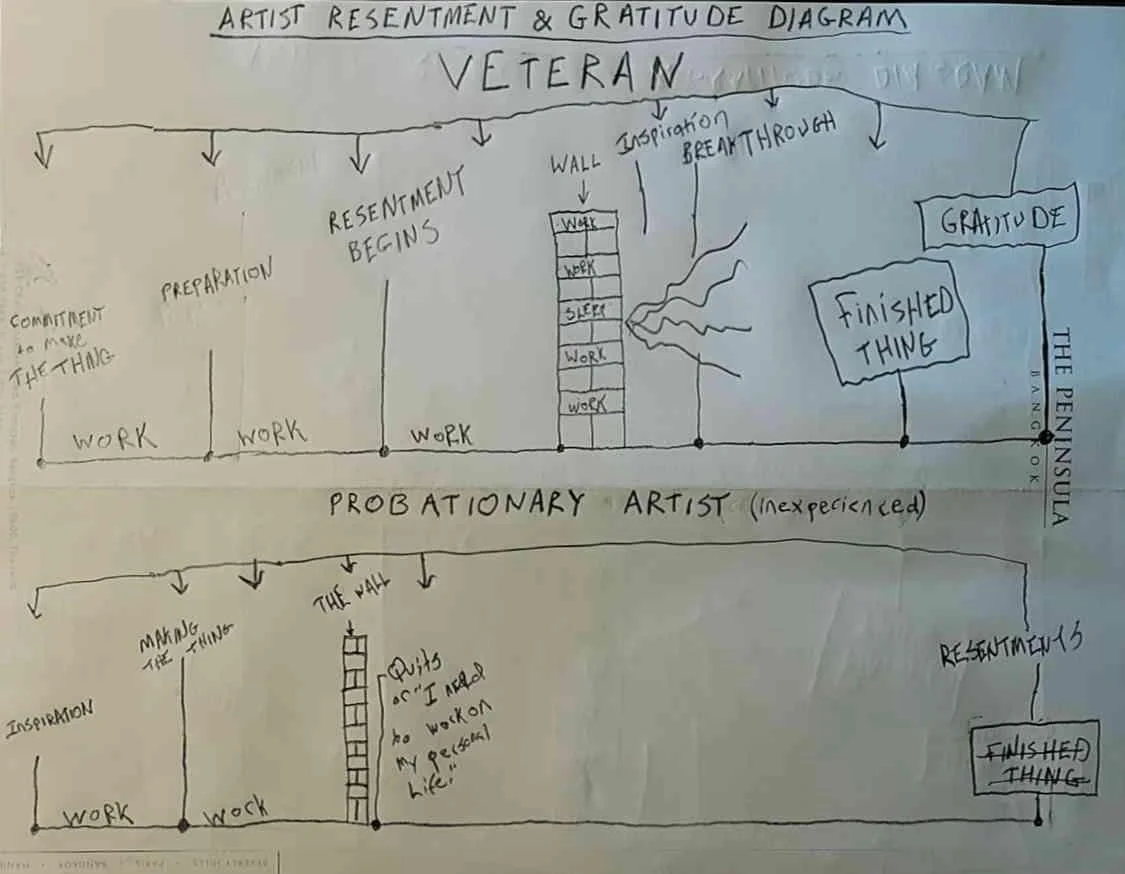 ARTIST RESENTMENT & GRATITUDE DIAGRAM
VETERAN
COMMITMENT
to make
THE THING
WORK
PREPARATION
WORK
RESENTMENT
BEGINS
WORK
WALL
WORK
WORK
SLEEP
WORK
WORK
Inspiration
BREAKTHROUGH
FiNiSHED
THING
GRATITUDE
THE PENINSULA
BANGKOK
PROBATIONARY ARTIST (inexperienced)
INSPIRATION
WORK
MAKING
THE THING
WORK
THE WALL
Quits
or "I need
to work on
My personal
Life."
RESENTMENTS
FINISHED
THING